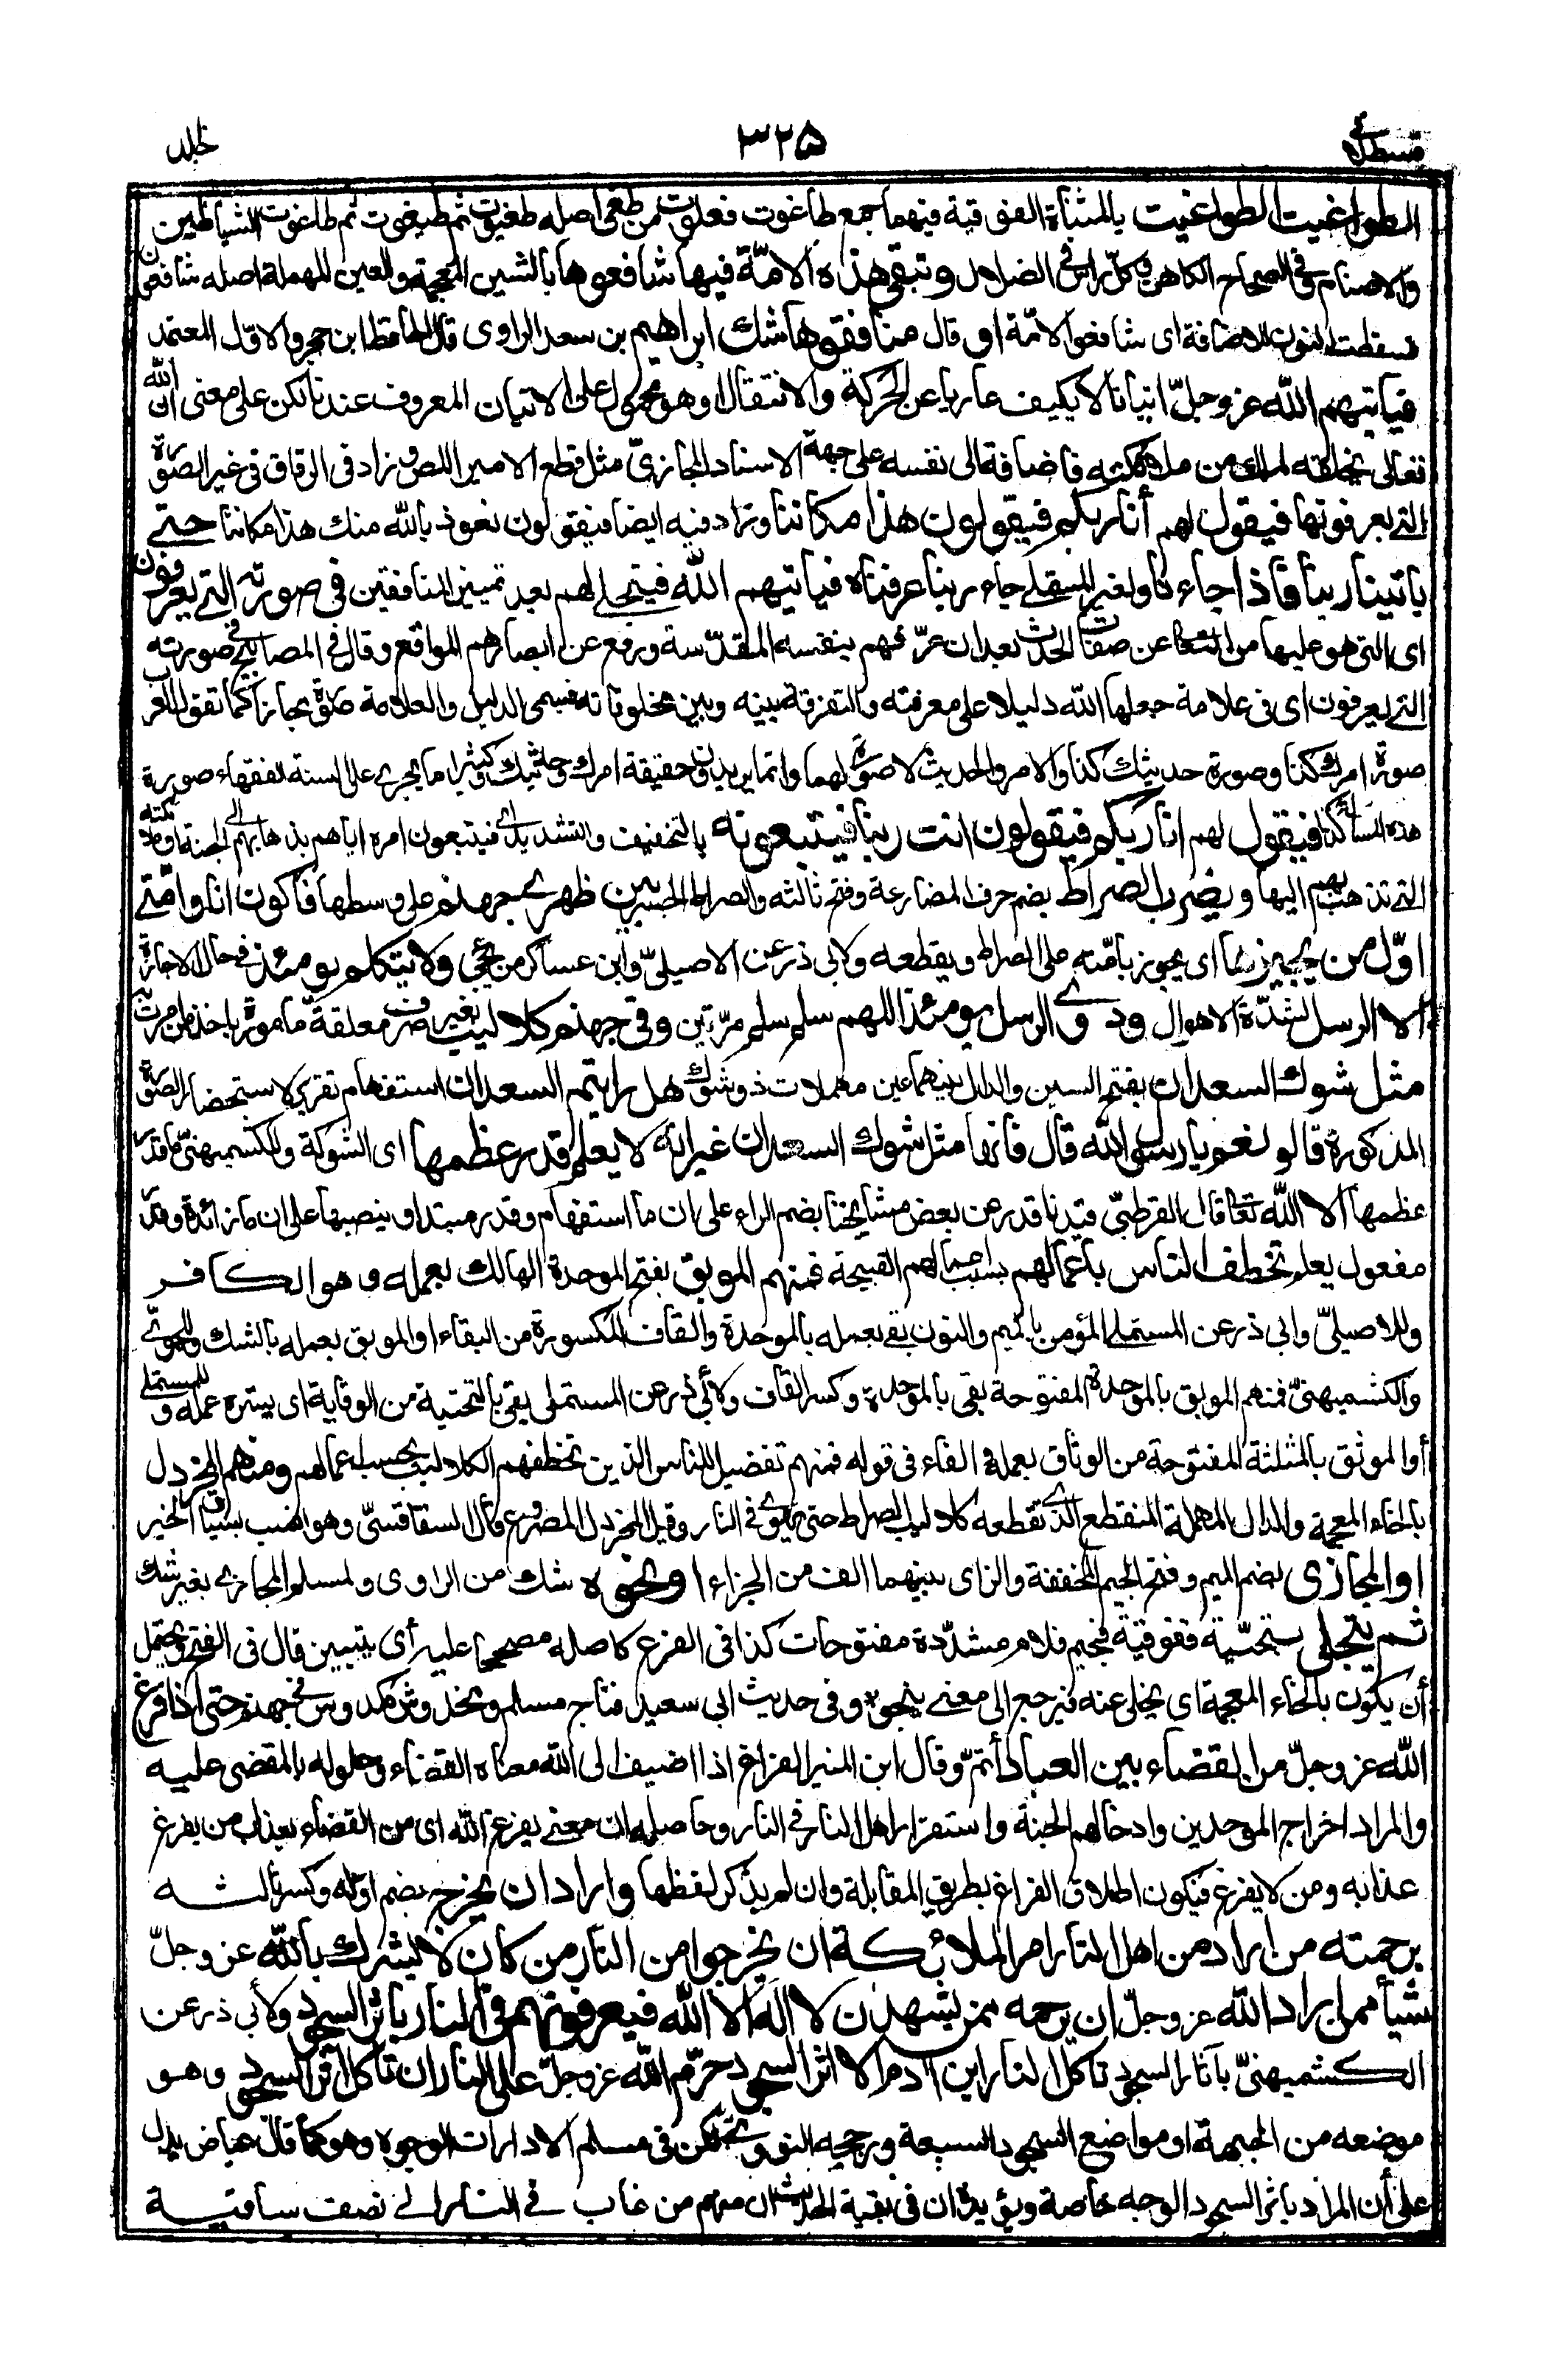 قسطلانی ٣٢٥ جلد
الطواغيت الطواغيت بالمثناة الفوقية فيهما جمع طاغوت فعلوت من طغى اصله طغيوت ثم طيغوت ثم طاغوت الشياطين
والاصنام وفى الصحاح الكاهن وكل راس فى الضلال وتبقى هذه الامّة فيها شافعوها بالشين المعجمة والعين المهملة اصله شافعون
فسقطت النون للاضافة اى شافعوا الامّة او قال منافقوها شك ابراهيم بن سعد الراوى قال الحافظ ابن حجر والاوّل المعتمد
فياتيهم الله عز وجلّ اتيانا لا يكيف عاريا عن الحركة والانتقال او هو محمول على الاتيان المعروف عندنا لكن على معنى ان الله
تعالى يخلقه لملك من ملائكته فاضافة الى نفسه على جهة الاسناد المجازىّ مثل قطع الامير اللص وزاد فى الرقاق فى غير الصورة
التى يعرفونها فيقول لهم أنا ربكم فيقولون هذا مكاننا وزاد فيه ايضا فيقولون نعوذ بالله منك هذا مكاننا حتى
ياتينا ربنا فاذا جاءنا ولغير المستملى جاء ربنا عرفناه فياتيهم الله فيتجلى لهم بعد تمييز المنافقين فى صورته التى يعرفون
اى التى هو عليها من التعالى عن صفات الحدث بعد ان عرّفهم بنفسه المقدّسة ورفع عن ابصارهم الموانع وقال فى المصابيح فى صورته
التى يعرفون اى فى علامة جعلها الله دليلا على معرفته والتفرقة بينه وبين مخلوقاته فسمى الدليل والعلامة صورة مجازا كما تقول العرب
صورة امرك كذا وصورة حديثك كذا والامر والحديث لا صورة لهما وانما يريدون حقيقة امرك وحديثك وكثيرا ما يجرى على السنة الفقهاء صورة
هذه المسألة كذا فيقول لهم انا ربكم فيقولون انت ربنا فيتبعونه بالتخفيف والتشديد اى فيتبعون امره اياهم بذهابهم الى الجنة او ملائكته
التى تذهب بهم اليها ويضرب الصراط بضم حرف المضارعة وفتح ثالثه والصراط الجسر بين ظهرى جهنم على وسطها فاكون انا وامّتى
اوّل من يجيزها اى يجوز بامّته على الصراط ويقطعه ولابى ذر عن الاصيلىّ وابن عساكر من يجئ ولا يتكلم يومئذ فى حال الاجازة
الا الرسل لشدّة الاهوال ودعوى الرسل يومئذ اللهم سلم سلم مرّتين وفى جهنم كلاليب بغير صرف معلقة مامورة باخذ من امرت به
مثل شوك السعدان بفتح السين والدال بينهما عين مهملات ذو شوك هل رايتم السعدان استفهام تقرير لاستحضار الصورة
المذكورة قالوا نعم يا رسول الله قال فانها مثل شوك السعدان غير انه لا يعلم قدر عظمها اى الشوكة وللكشميهنىّ ما قدر
عظمها الا الله تعالى قال القرطبىّ قيدنا قدر عن بعض مشايخنا بضم الراء على ان ما استفهام وقدر مبتدا وبنصبها على ان ما زائدة وقدر
مفعول يعلم تخطف الناس باعمالهم بسبب اعمالهم القبيحة فمنهم الموبق بفتح الموحدة الهالك بعمله وهو الكافر
وللاصيلىّ وابى ذر عن المستملى المؤمن بالميم والنون بقى بعمله بالموحدة والقاف المكسورة من البقاء او الموبق بعمله بالشك وللحموىّ
والكشميهنىّ فمنهم الموبق بالموحدة المفتوحة بقى بالموحدة وكسر القاف ولأبى ذر عن المستملى يقى بالتحتية من الوقاية اى يستره عمله وللمستملى
أو الموثق بالمثلثة المفتوحة من الوثاق بعمله والفاء فى قوله فمنهم تفصيل للناس الذين تخطفهم الكلاليب بحسب اعمالهم ومنهم المخردل
بالخاء المعجمة والدال المهملة المنقطع الذى تقطعه كلاليب الصراط حتى يهوى فى النار وقيل المخردل المصروع قال السفاقسىّ وهو انسب بسياق الخبر
او المجازى بضم الميم وفتح الجيم المخففة والزاى بينهما الف من الجزاء او نحوه شك من الراوى ولمسلم المجازى بغير شك
ثم يتجلى بتحتيّة ففوقية فجيم فلام مشدّدة مفتوحات كذا فى الفرع كاصله مصححا عليه أى يتبين قال فى الفتح ويحتمل
أن يكون بالخاء المعجمة اى يخلى عنه فيرجع الى معنى ينجو وفى حديث ابى سعيد فناج مسلم ومخدوش ومكدوس فى جهنم حتى اذا فرغ
الله عز وجلّ من القضاء بين العباد أتمّ وقال ابن المنير الفراغ اذا اضيف الى الله معناه القضاء وحلوله بالمقضى عليه
والمراد اخراج الموحدين وادخالهم الجنة واستقرار اهل النار فى النار وحاصله ان معنى يفرغ الله اى من القضاء بعذاب من يفرغ
عذابه ومن لا يفرغ فيكون اطلاق الفراغ بطريق المقابلة وان لم يذكر لفظها واراد ان يخرج بضم اوّله وكسر ثالثه
برحمته من اراد من اهل النار امر الملائكة ان يخرجوا من النار من كان لا يشرك بالله عز وجلّ
شيأ ممن اراد الله عز وجلّ ان يرحمه ممن يشهد ان لا اله الا الله فيعرفونهم فى النار باثر السجود ولأبى ذر عن
الكشميهنىّ بآثار السجود تاكل النار ابن آدم الا اثر السجود حرّم الله عز وجلّ على النار ان تاكل اثر السجود وهو
موضعه من الجبهة او مواضع السجود السبعة ورجحه النووى لكن فى مسلم الا دارات الوجوه وهو كما قال عياض يدل
على أن المراد باثر السجود الوجه خاصة ويؤيده ان فى بقية الحديث ان منهم من غاب فى النار الى نصف ساقيه